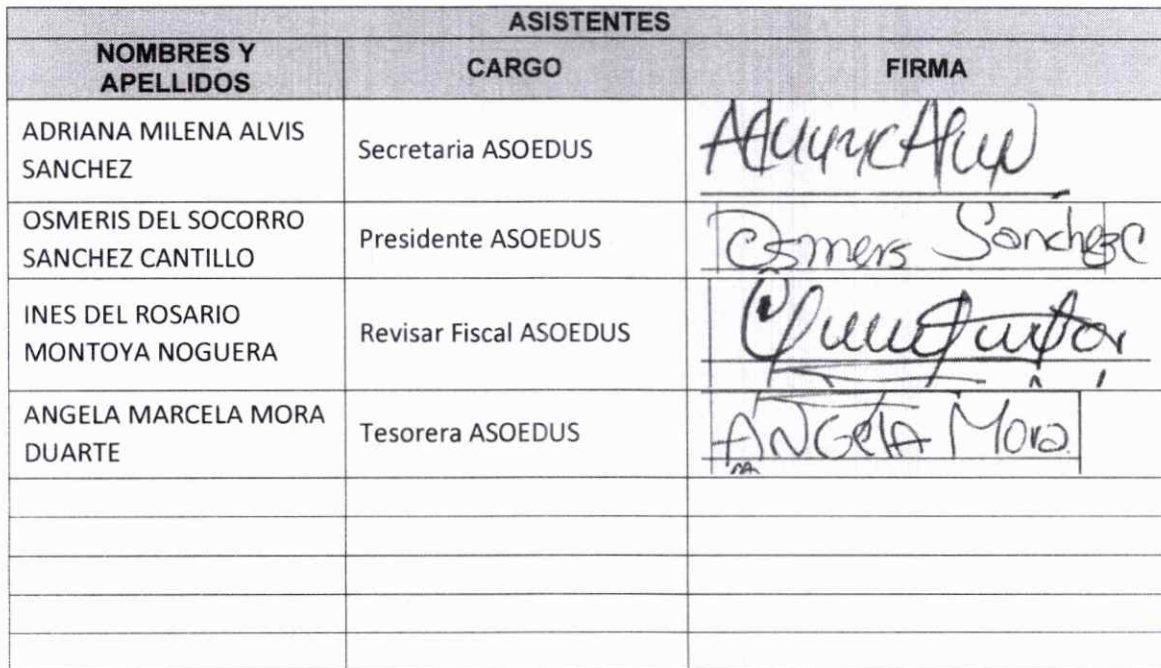 ASISTENTES
NOMBRES Y
APELLIDOS
CARGO
FIRMA
ADRIANA MILENA ALVIS
SANCHEZ
Secretaria ASOEDUS
OSMERIS DEL SOCORRO
SANCHEZ CANTILLO
Presidente ASOEDUS
Osmeris Sanchez C
INES DEL ROSARIO
MONTOYA NOGUERA
Revisar Fiscal ASOEDUS
ANGELA MARCELA MORA
DUARTE
Tesorera ASOEDUS
ANGelA Mora